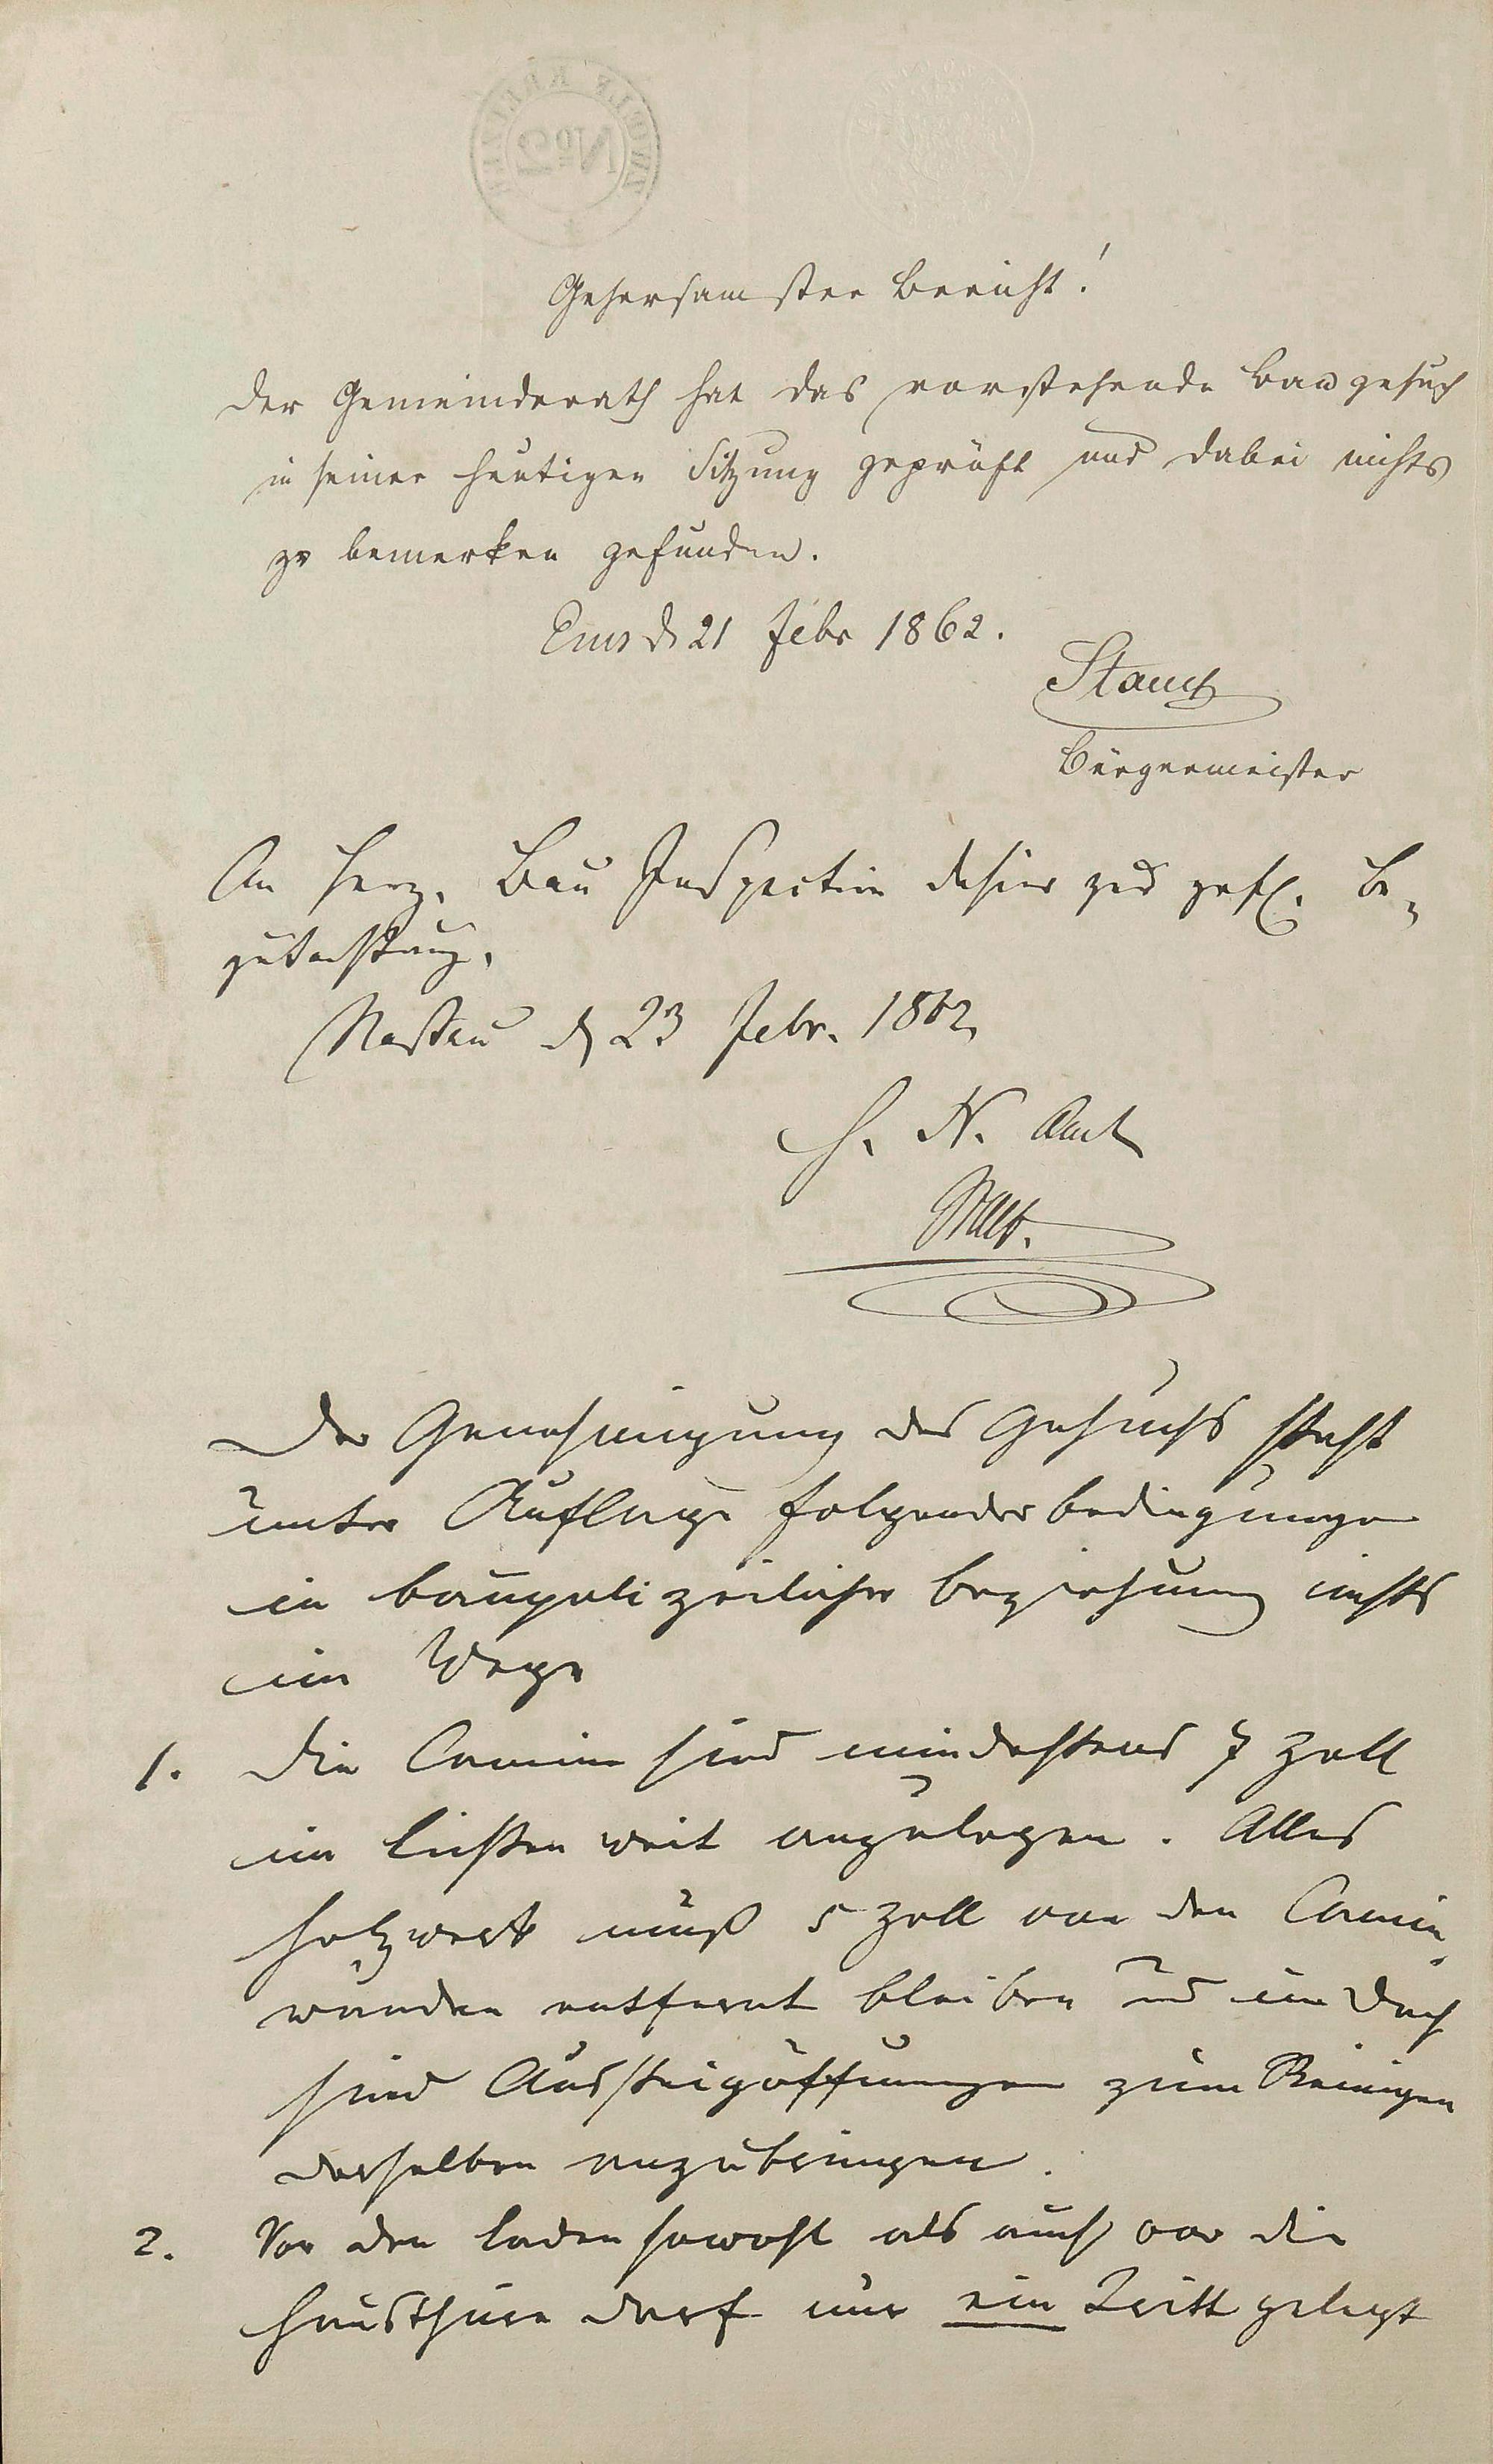 Nº 2
Gehorsamster Bericht!
Der Gemeinderath hat das vorstehende Baugesuch
in seiner heutigen Sitzung geprüft und dabei nichts
zu bemerken gefunden.
Ems d 21 Febr 1862.
Stauch
Bürgermeister
An Herz. Bau Inspection dahier zur gefl. Be-
gutachtung.
Nassau d 23 Febr. 1862
H. N. Amt
Der Genehmigung des Gesuchs steht
unter Auflage folgender Bedingungen
in baupolizeilicher Beziehung nichts
im Wege
1. Die Camine sind mindestens 7 Zoll
im Lichten weit anzulegen. Alles
Holzwerk muß 5 Zoll von den Camin-
wänden entfernt bleiben und im Dach
sind Aussteigöffnungen zum Reinigen
derselben anzubringen.
2. Vor den Laden sowohl als auch vor die
Hausthüre darf nur ein Tritt gelegt